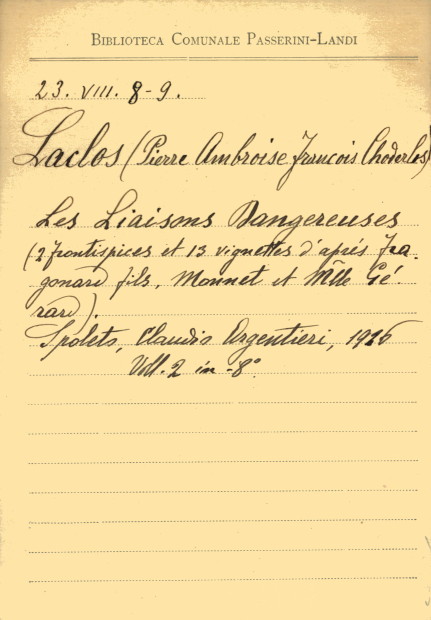 BIBLIOTECA COMUNALE PASSERINI-LANDI
23. VIII. 8-9.
Laclos (Pierre Ambroise François Choderlos)
Les Liaisons Dangereuses
(2 frontispices et 13 vignettes d'aprés Fra-
gonard fils, Monnet et Mlle Gé-
rard).
Spolets, Claudis Argentieri, 1926
Voll. 2 in-8°